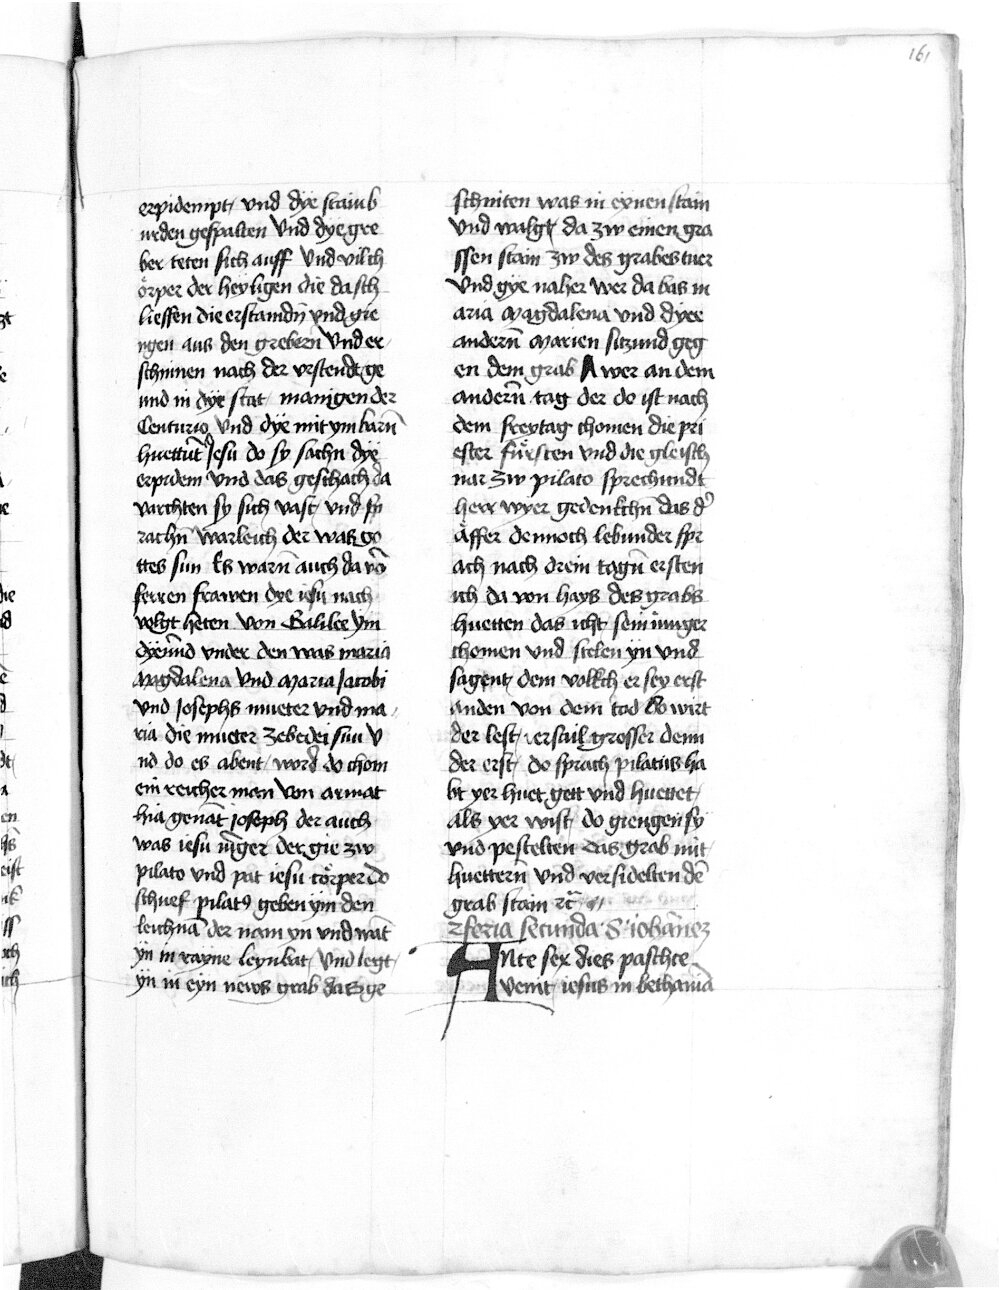 161
erpidempt und dÿe stainb
urden gespalten Und dÿe gre
ber teten sich auff Und vilch
örper der heÿligen die da sch
lieffen die erstamdn̄ vnd gie
ngen aus den grebern̄ Vnd er
schinnen nach der vrstendt ge
und in dÿe stat manigen der
Centurio Vnd dÿe mit ym barn̄
huettut̄ Jesu do sy sachn dÿe
erpidem Vnd das geschach da
varchten sy sich vast vnd sp
rachn̄ Warleich der was go
ttes sun Es warn̄ auch da vō
ferren frawen dye iesu nach
volgt heten von Galilee ÿm
dyenn̄d vnder den was maria
Magdalena Vnd Maria Jacobi
Vnd Josephs mueter vnd ma
ria die mueter Zebedei sun V
nd do es abent word do chom
ein reicher man Von armat
hia genāt ioseph der auch
was iesu iūger der gie zw
pilato vnd pat iesu cörper Do
schuef pilatꝰ geben ÿm den
leichnā der nam yn vnd wāt
ÿn in rayne leynbat Vnd legt
ÿn in eyn news grab das ge
schniten was in eÿnen stain
Vnd walgt da zw einen gra
ssen stain zw des grabes tuer
Vnd gÿe naher Wer da bas m
aria Magdalena vnd dyee
andern̄ Marien sitzund geg
en dem grab Awer an dem
andern̄ tag der do ist nach
dem freytag chomen die pri
ester fürsten vnd die gleisch
nar zw pilato sprechundt
herr wyer gedenkchn̄ das d
äffer dennoch lebunder spr
ach nach drein tagn̄ ersten
ich da von hays des grabs
huetten das icht sein iunger
chomen vnd stelen yn vnd
sagent dem volkch er sey erst
anden von dem tod So wirt
der lest iersail grosser denn
der erst do sprach pilatus ha
bt yer huet gett vnd huettet
als yer wist do giengen sy
vnd pestelten das grab mit
huettern vnd versidelten dē
grab stain ꝛc̄
feria secunda S iohānez
ANte sex dies pasche
venit iesus in bethaniā